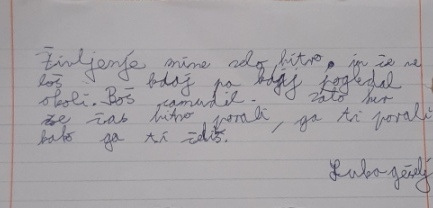 Življenje mine zelo hitro, in če ne
boš kdaj pa kdaj pogledal
okoli. Boš zamudil. zato ker
se čas hitro porabi, ga ti porabi
kako ga ti želiš.
Luba